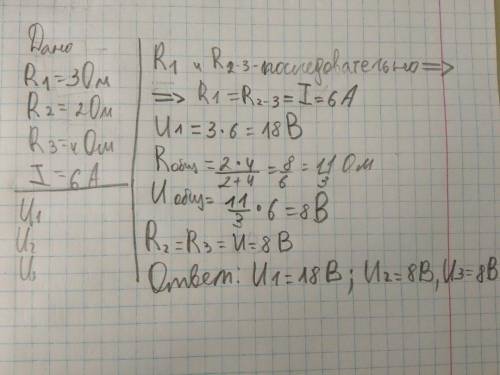 Дано
R1=3Ом
R2=2Ом
R3=4Ом
I=6А
U1
U2
U3
R1 и R2-3-последовательно=>
=> R1=R2-3=I=6А
U1=3·6=18В
Rобщ=2·4/2+4=8/6=11/3 Ом
Uобщ=11/3·6=8В
R2=R3=U=8В
Ответ: U1=18В; U2=8В, U3=8В